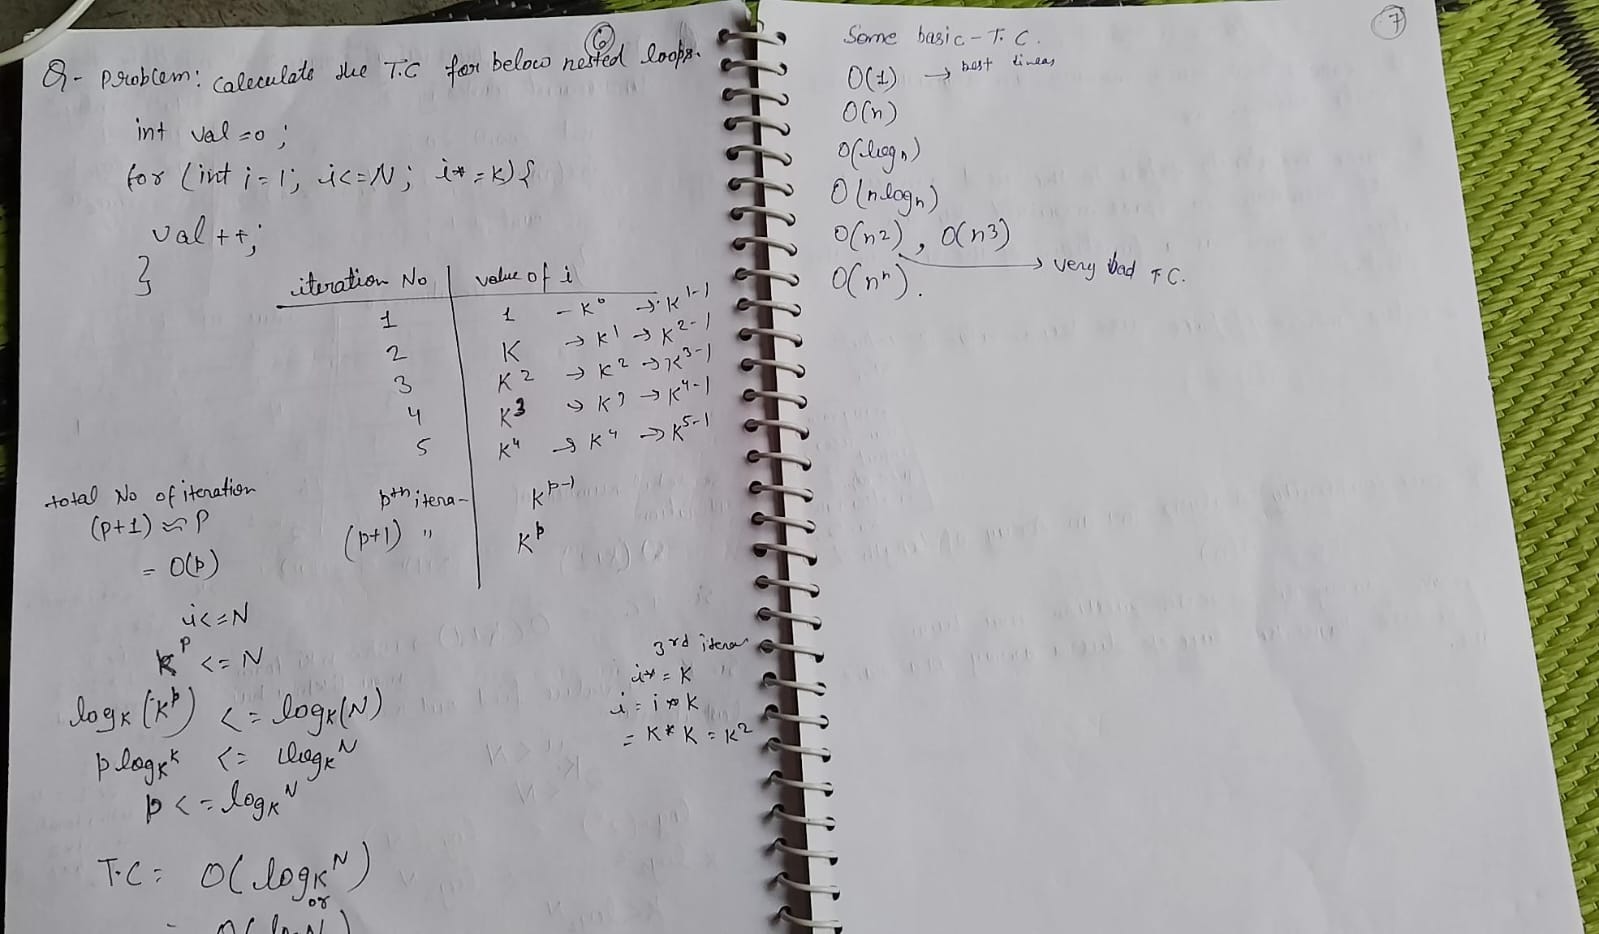 6
Q- Problem: calculate the T.C for below nested loops.
int val=0;
for (int i=1; i<=N; i*=k){
val++;
}
iteration No | value of i
1 1 - K⁰ → K¹⁻¹
2 K → K¹ → K²⁻¹
3 K2 → K² → K³⁻¹
4 K³ → K³ → K⁴⁻¹
5 K⁴ → K⁴ → K⁵⁻¹
total No of iteration
(p+1) ≈ P
= O(p)
pth itera- Kᵖ⁻¹
(p+1) " Kᵖ
i<=N
Kᵖ <= N
logK (Kᵖ) <= logK(N)
p logK K <= logK N
p <= logK N
T.C = O(logK N)
or
3rd itera
i* = K
i = i * K
= K * K = K²
7
Some basic - T. C.
O(1) → best linear
O(n)
O(logn)
O(nlogn)
O(n2), O(n3)
→ very bad T C.
O(nⁿ).